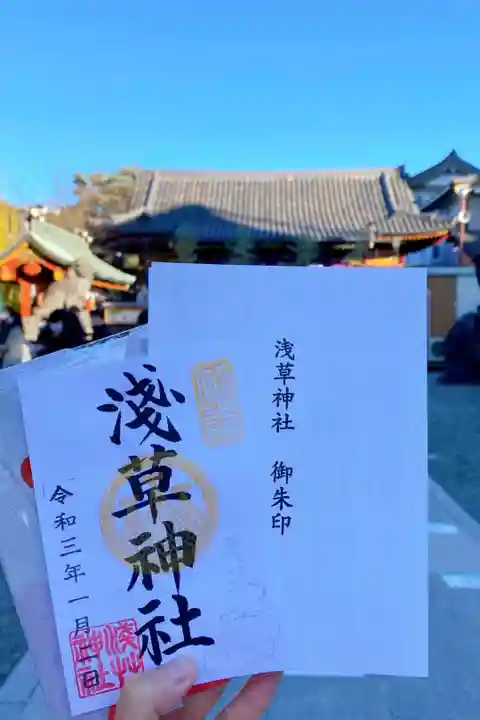 浅草神社　御朱印
淺草神社
令和三年一月二日
淺草
神社